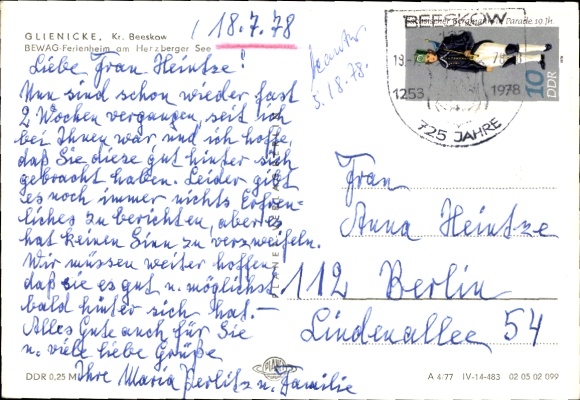 18.7.78
GLIENICKE, Kr. Beeskow
BEWAG-Ferienheim am Herzberger See
Liebe Frau Heintze!
Nun sind schon wieder fast
2 Wochen vergangen, seit ich
bei Ihnen war und ich hoffe,
daß Sie diese gut hinter sich
gebracht haben. Leider gibt
es noch immer nichts Erfreu-
liches zu berichten, aber es
hat keinen Sinn zu verzweifeln.
Wir müssen weiter hoffen
daß sie es gut u. möglichst
bald hinter sich hat. –
Alles Gute auch für Sie
u. viele liebe Grüße
Ihre Maria Perlitz u. Familie
3.8.78.
BEESKOW
1253 1978
725 JAHRE
Parade 19. Jh.
10 DDR
Frau
Anna Heintze
112 Berlin
Lindenallee 54
PLANET
DDR 0,25 M
A 4/77 IV-14-483 02 05 02 099